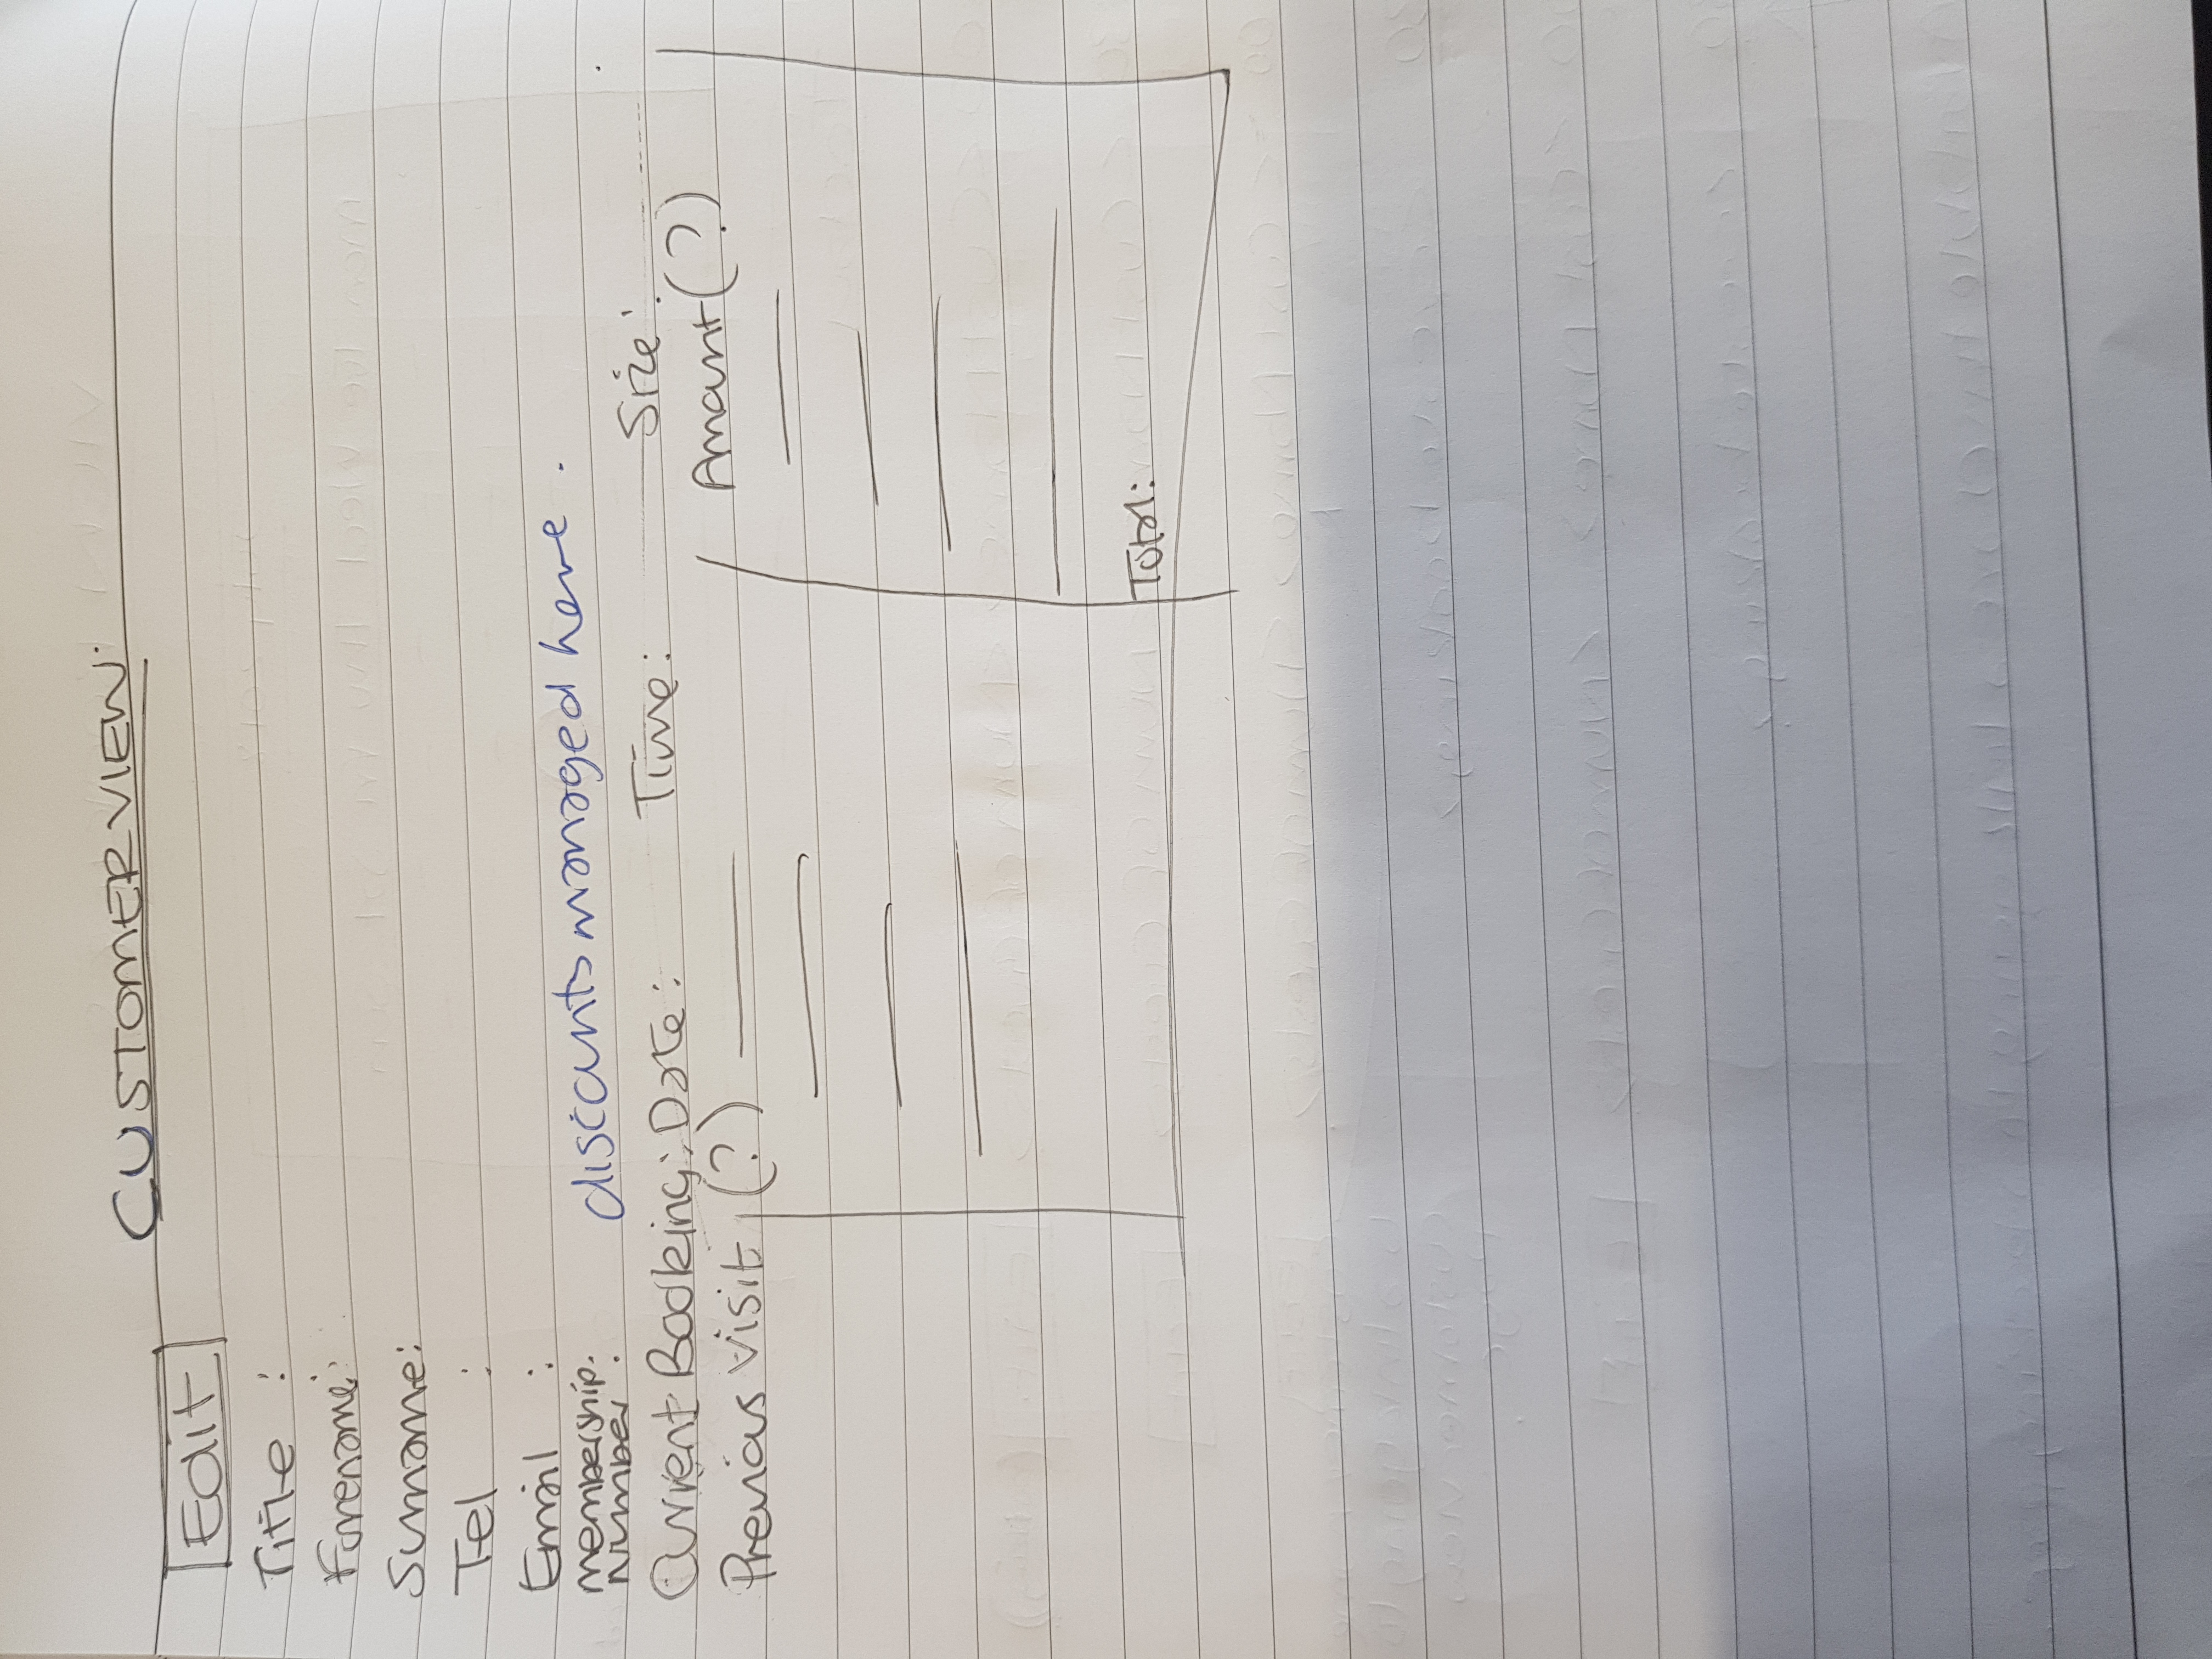 CUSTOMER VIEW.
Edit
Title :
Forename:
Surname:
Tel :
Email :
membership
number :
discounts managed here .
Current Booking: Date: Time: Size:
Previous visit (?) Amount (?)
Total: